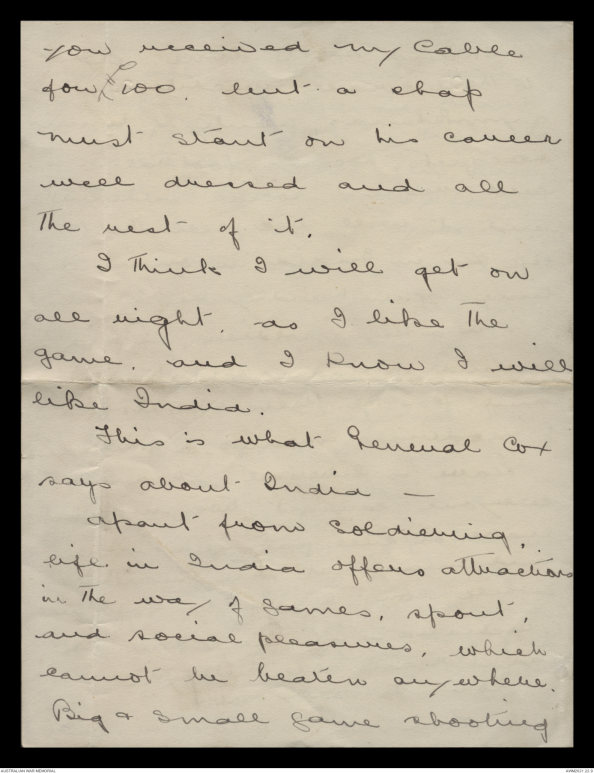 you received my Cable
for £100. but a chap
must start on his career
well dressed and all
the rest of it.
I think I will get on
all right, as I like the
game. and I know I will
like India.
This is what General Cox
says about India —
apart from soldiering,
life in India offers attractions
in the way of games, sport,
and social pleasures, which
cannot be beaten anywhere.
Big & small game shooting
AUSTRALIAN WAR MEMORIAL